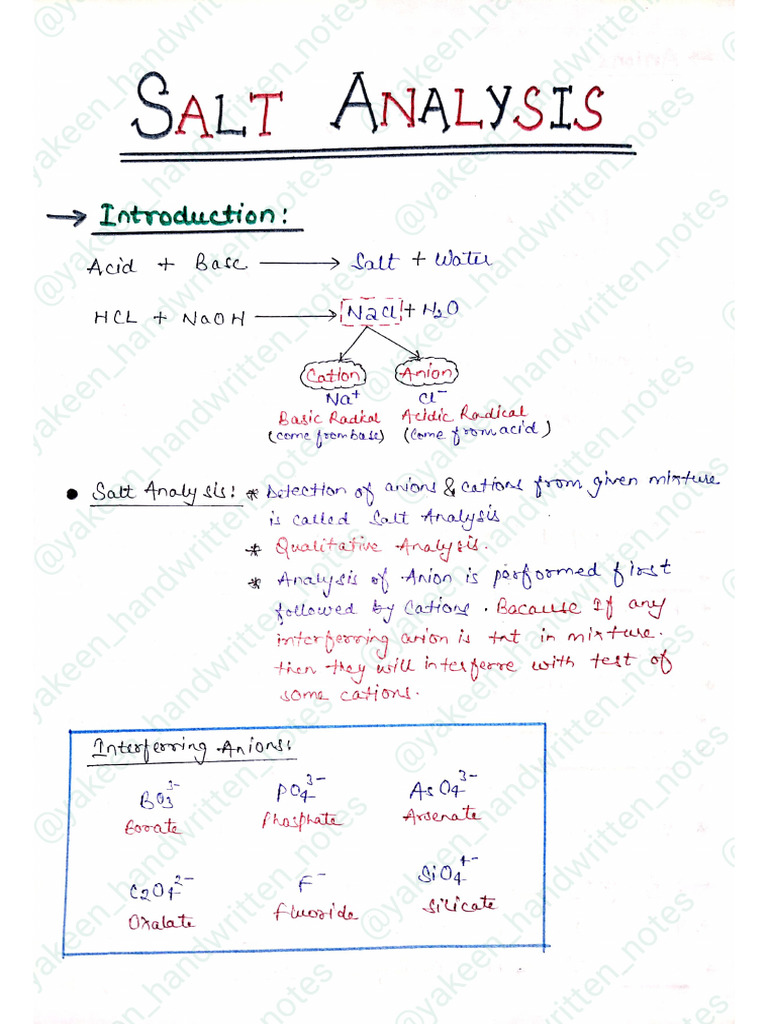 SALT ANALYSIS
→ Introduction:
Acid + Base → Salt + Water
HCL + NaOH → NaCl + H2O
Cation Anion
Na+ Cl-
Basic Radical Acidic Radical
(come from base) (come from acid)
• Salt Analysis: * Detection of anions & cations from given mixture
is called Salt Analysis
* Qualitative Analysis.
* Analysis of Anion is performed first
followed by Cations. Bacause If any
interferring anion is tnt in mixture.
then they will interferre with test of
some cations.
Interferring Anions:
BO3^3- PO4^3- AsO4^3-
Borate Phosphate Arsenate
C2O4^2- F^- SiO4^4-
Oxalate Fluoride Silicate
@yakeen_handwritten_notes